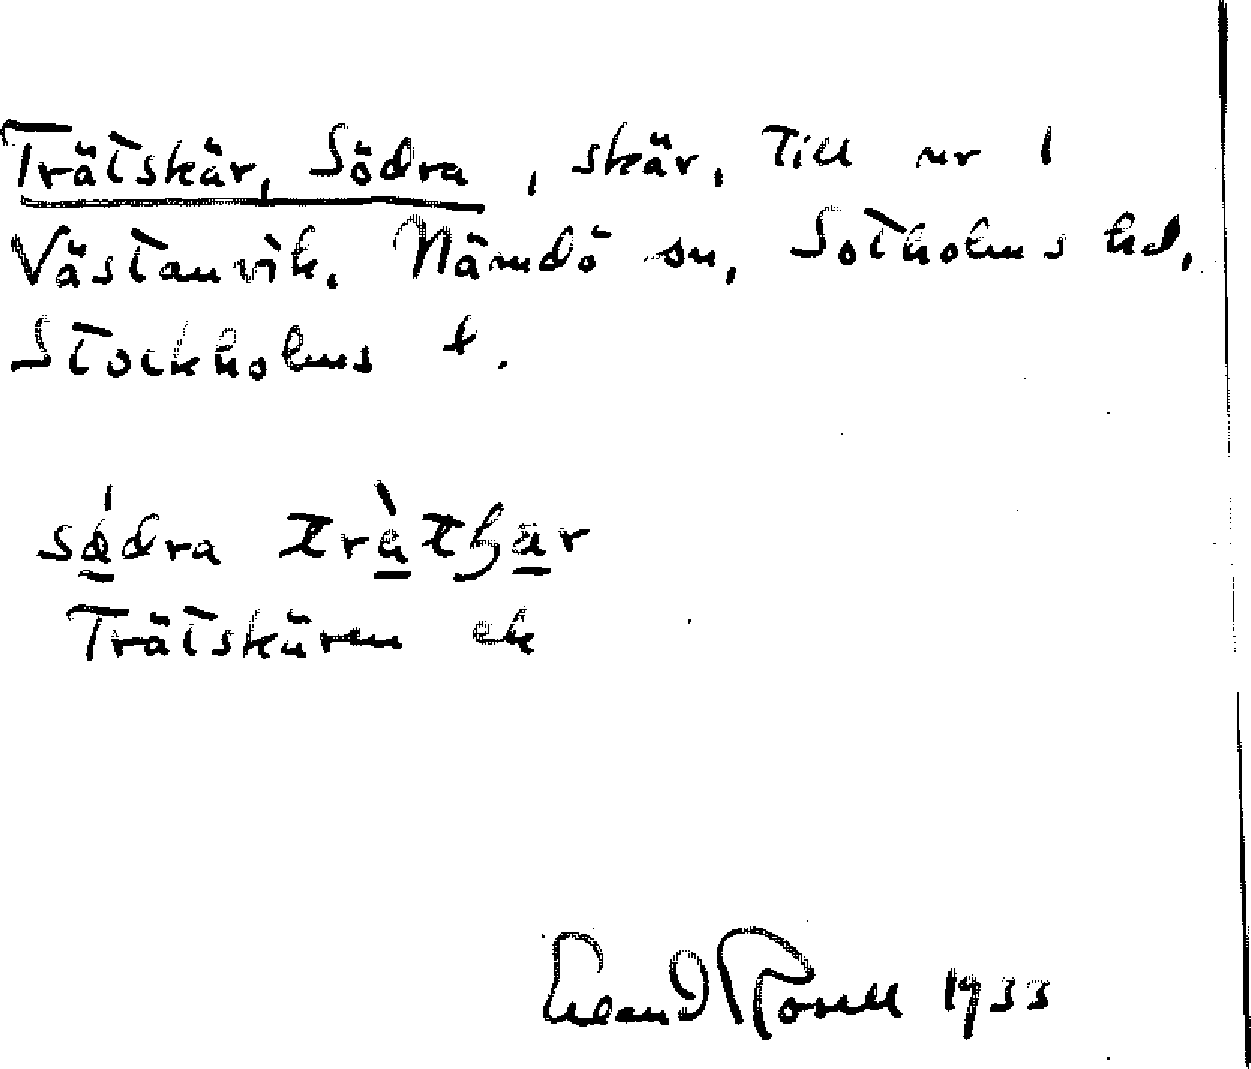 Trätskär, Södra, skär, Till nr 1
Västanvik. Nämdö sn, Sotholms hd,
Stockholms l.
södra trätskär
Trätskären ek
Erland Rosell 1933